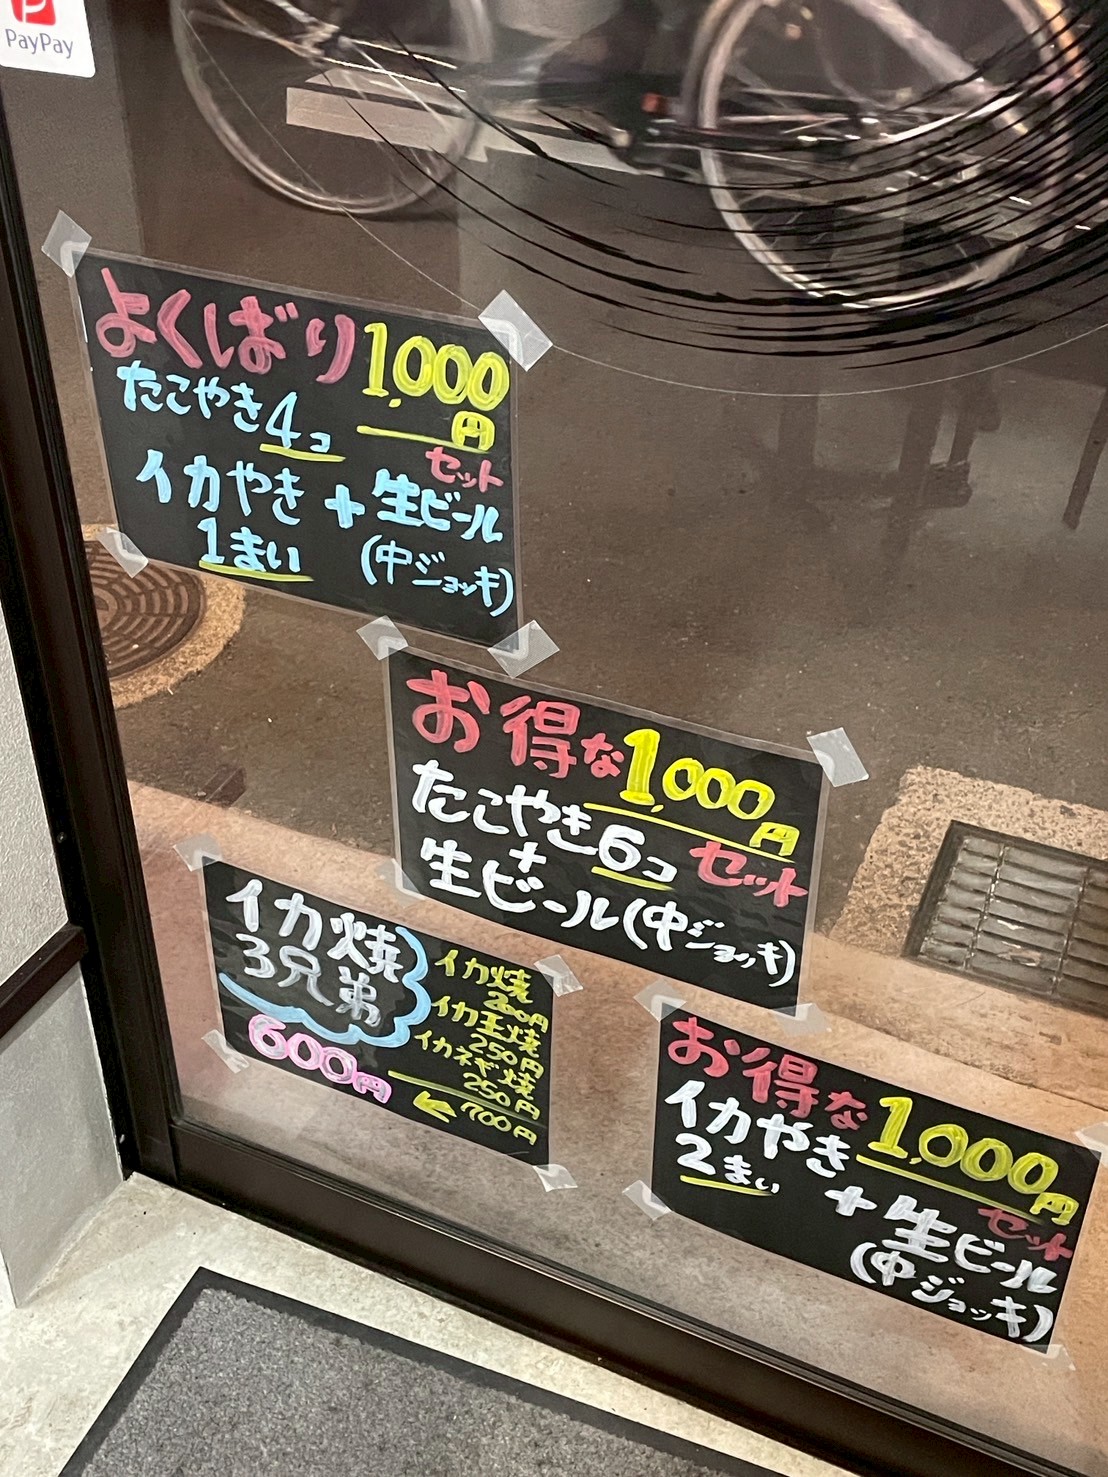 PayPay
よくばり1,000円
セット
たこやき4コ
イカやき
1まい
+生ビール
(中ジョッキ)
お得な1,000円
セット
たこやき6コ
+
生ビール(中ジョッキ)
イカ焼
3兄弟
600円
イカ焼
200円
イカ玉焼
250円
イカネギ焼
250円
700円
お得な1,000円
セット
イカやき
2まい
+生ビール
(中ジョッキ)